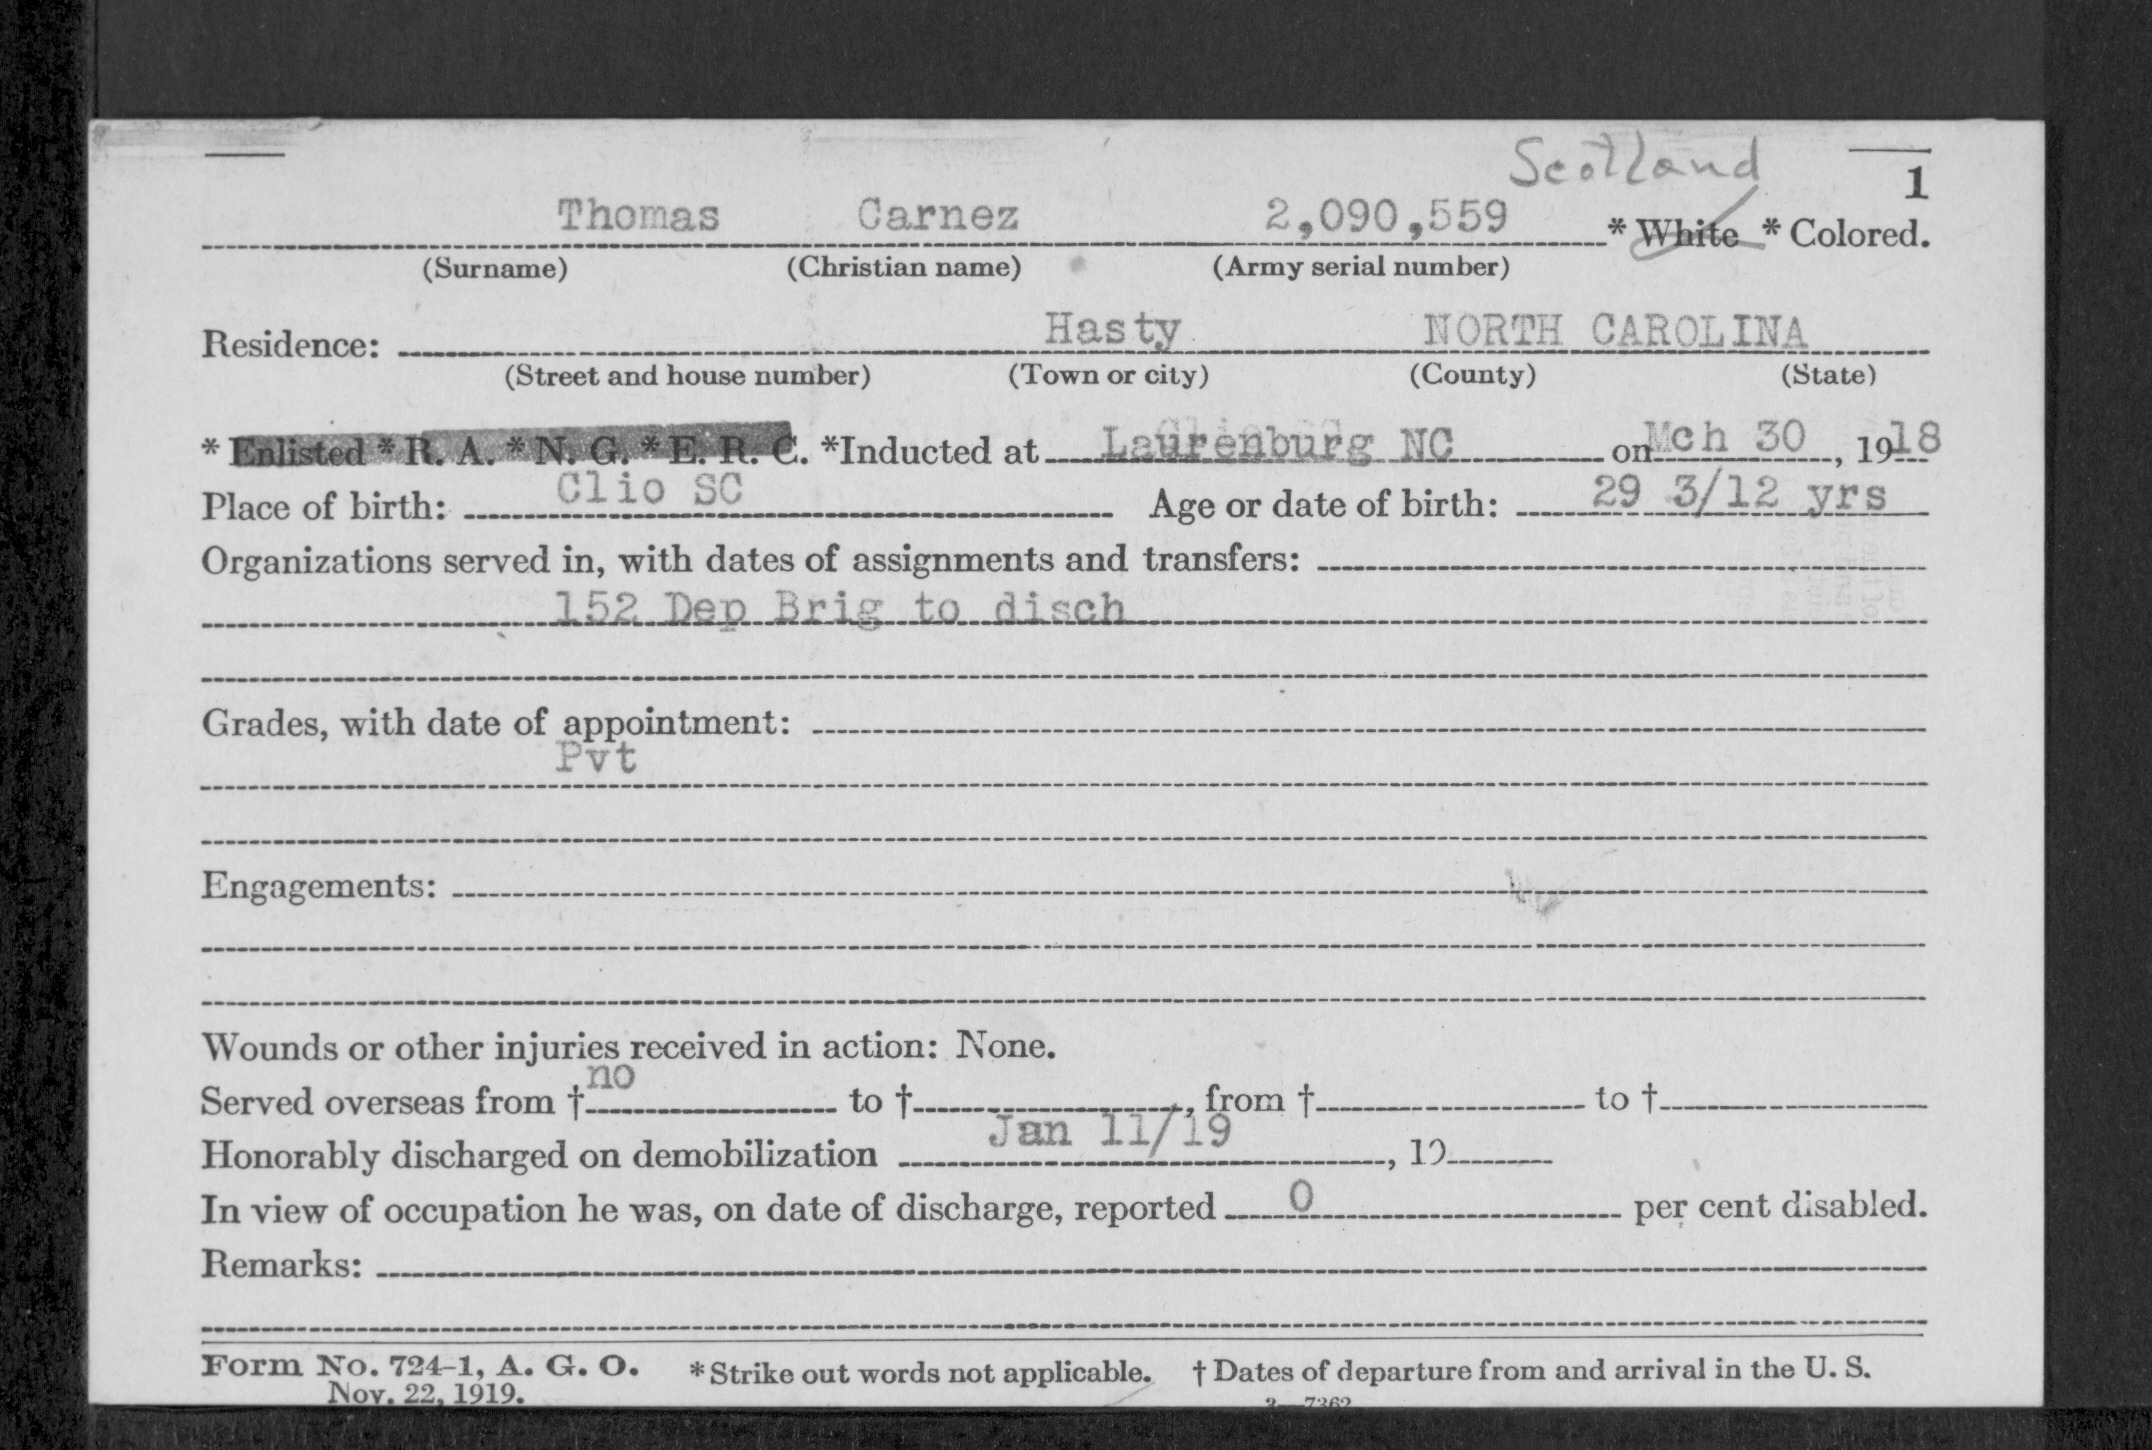 Scotland
1
Thomas Carnez 2,090,559 * White * Colored.
(Surname) (Christian name) (Army serial number)
Residence: Hasty NORTH CAROLINA
(Street and house number) (Town or city) (County) (State)
* Enlisted * R. A. * N. G. * E. R. C. *Inducted at Laurenburg NC on Mch 30, 1918
Place of birth: Clio SC Age or date of birth: 29 3/12 yrs
Organizations served in, with dates of assignments and transfers:
152 Dep Brig to disch
Grades, with date of appointment:
Pvt
Engagements:
Wounds or other injuries received in action: None.
Served overseas from † no to †, from † to †
Honorably discharged on demobilization Jan 11/19, 19
In view of occupation he was, on date of discharge, reported 0 per cent disabled.
Remarks:
Form No. 724-1, A. G. O. * Strike out words not applicable. † Dates of departure from and arrival in the U. S.
Nov. 22, 1919. 3—7362